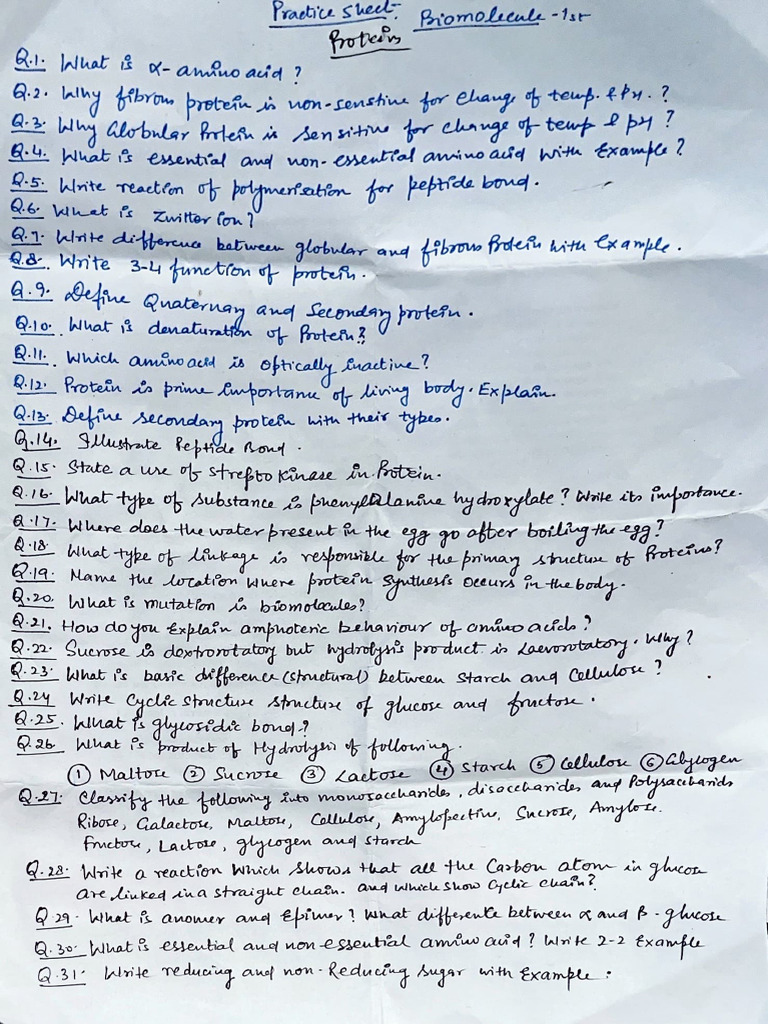 Practice Sheet. Biomolecule - 1st
Protein
Q.1. What is α-amino acid?
Q.2. Why fibrous protein is non-senstive for change of temp. & PH.?
Q.3. Why Globular Protein is sensitive for change of temp & pH?
Q.4. What is essential and non-essential amino acid with Example?
Q.5. Write reaction of polymerisation for peptide bond.
Q.6. What is Zwitter ion?
Q.7. Write difference between globular and fibrous Protein with Example.
Q.8. Write 3-4 function of protein.
Q.9. Define Quaternary and Secondary protein.
Q.10. What is denaturation of Protein?
Q.11. Which amino acid is optically inactive?
Q.12. Protein is prime importance of living body. Explain.
Q.13. Define secondary protein with their types.
Q.14. Illustrate Peptide Bond.
Q.15. State a use of strepto kinase in Protein.
Q.16. What type of substance is phenylalanine hydroxylate? Write its importance.
Q.17. Where does the water present in the egg go after boiling the egg?
Q.18. What type of linkage is responsible for the primary structure of Proteins?
Q.19. Name the location where protein synthesis occurs in the body.
Q.20. What is mutation is biomolecules?
Q.21. How do you Explain amphoteric behaviour of amino acids?
Q.22. Sucrose is dextrorotatory but hydrolysis product is Laevorotatory. Why?
Q.23. What is basic difference (structural) between Starch and Cellulose?
Q.24 Write Cyclic structure structure of glucose and fructose.
Q.25. What is glycosidic bond?
Q.26. What is product of Hydrolysis of following.
① Maltose ② Sucrose ③ Lactose ④ Starch ⑤ Cellulose ⑥ Glycogen
Q.27. Classify the following into monosaccharides, disaccharides and Polysaccharids
Ribose, Galactose, Maltose, Cellulose, Amylopectine, Sucrose, Amylose.
fructose, Lactose, glycogen and starch
Q.28. Write a reaction which shows that all the Carbon atom in glucose
are linked in a straight chain. and which show Cyclic chain?
Q.29. What is anomer and Epimer? What difference between α and β-glucose
Q.30. What is essential and non essential amino acid? Write 2-2 Example
Q.31. Write reducing and non-Reducing sugar with Example: